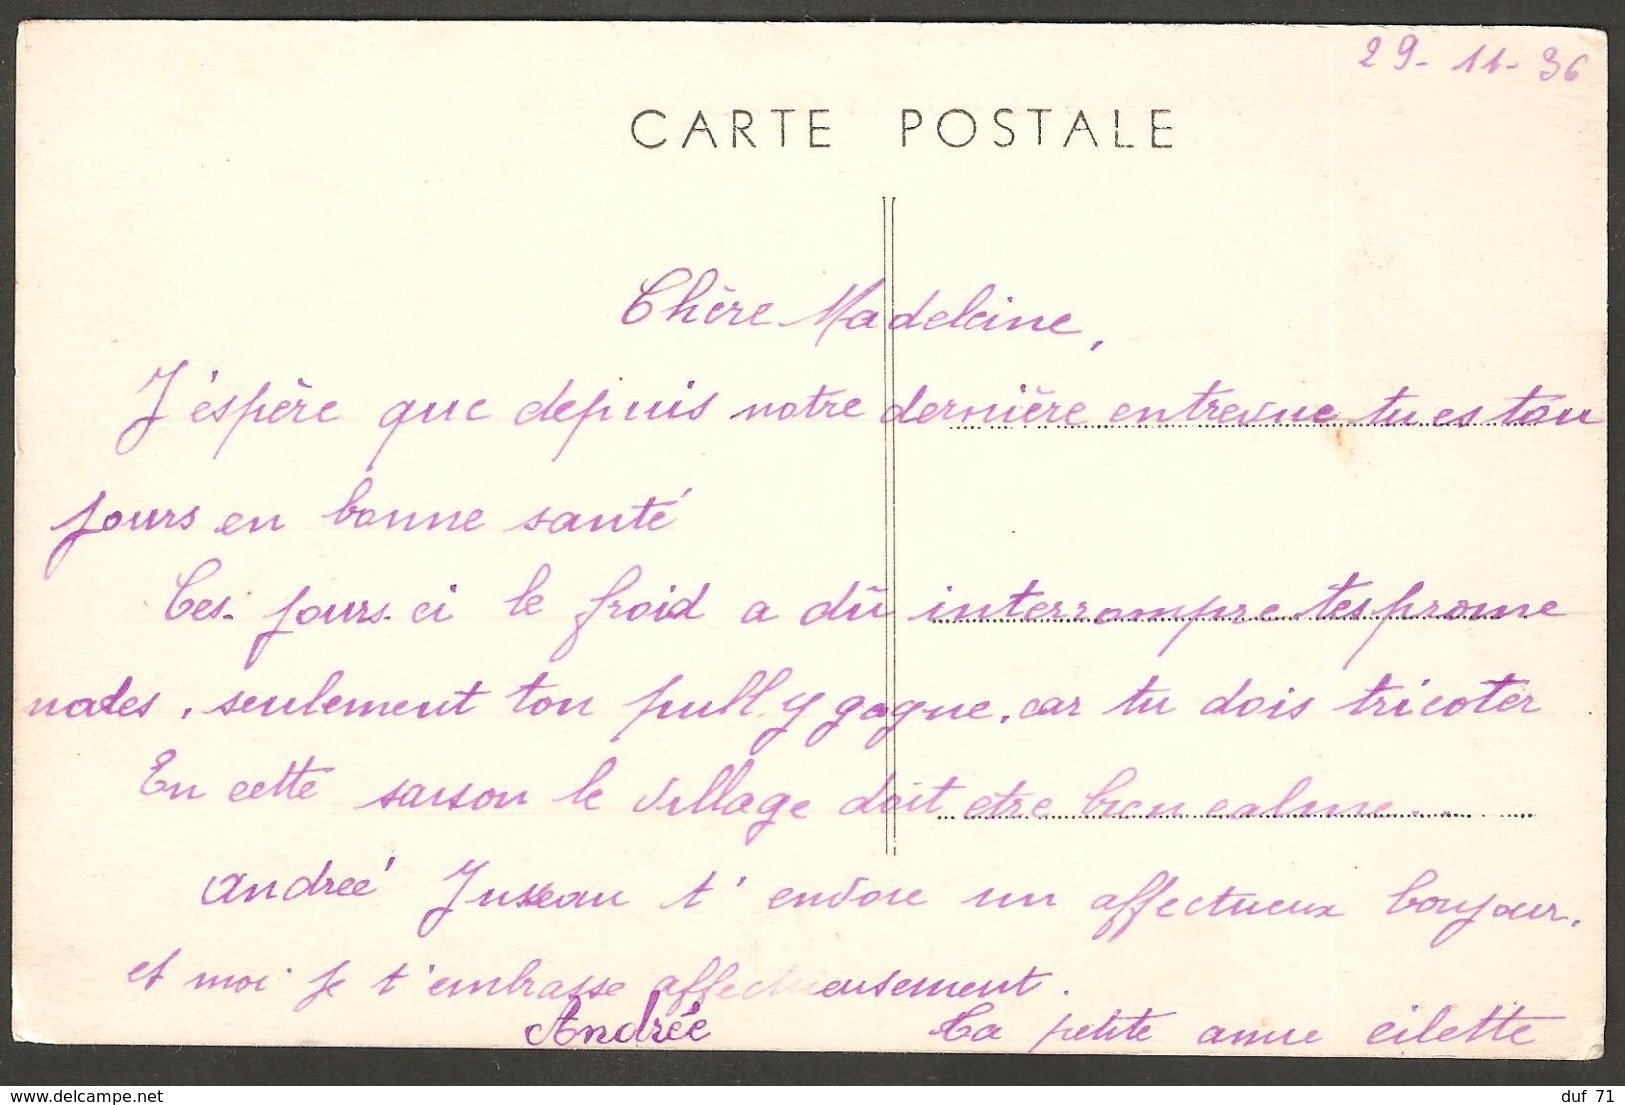 29-11-36
CARTE POSTALE
Chère Madeleine,
J'espère que depuis notre dernière entrevue tu es tou
jours en bonne santé
Ces-jours-ci le froid a dû interrompre tes prome
nades, seulement ton pull y gagne, car tu dois tricoter
En cette saison le village doit etre bien calme...
Andreé t'envoie un affectueux bonjour,
et moi je t'embrasse affectueusement.
Andrée Ta petite amie
delcampe.net
duf_71